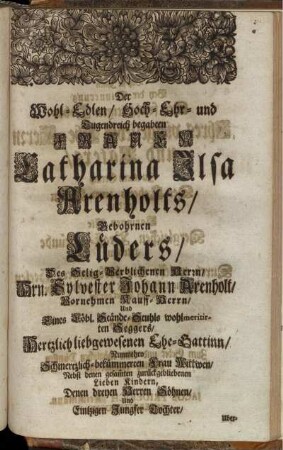 Der
Wohl-Edlen/ Hoch-Ehr- und
Tugendreich begabten
FRAUEN
Catharina Ilsa
Arenholts/
Gebohrnen
Lüders/
Des Selig-Verblichenen Herrn/
Hrn. Sylvester Johann Arenholt/
Vornehmen Kauff-Herrn/
Und
Eines Löbl. Stände-Stuhls wohlmeritir-
ten Seggers/
Hertzlich liebgewesenen Ehe-Gattinn/
Nunmehro
Schmertzlich-bekümmerten Frau Wittwen/
Nebst denen gesamten zurückgebliebenen
Lieben Kindern,
Denen dreyen Herren Söhnen/
Und
Eintzigen Jungfer Tochter/